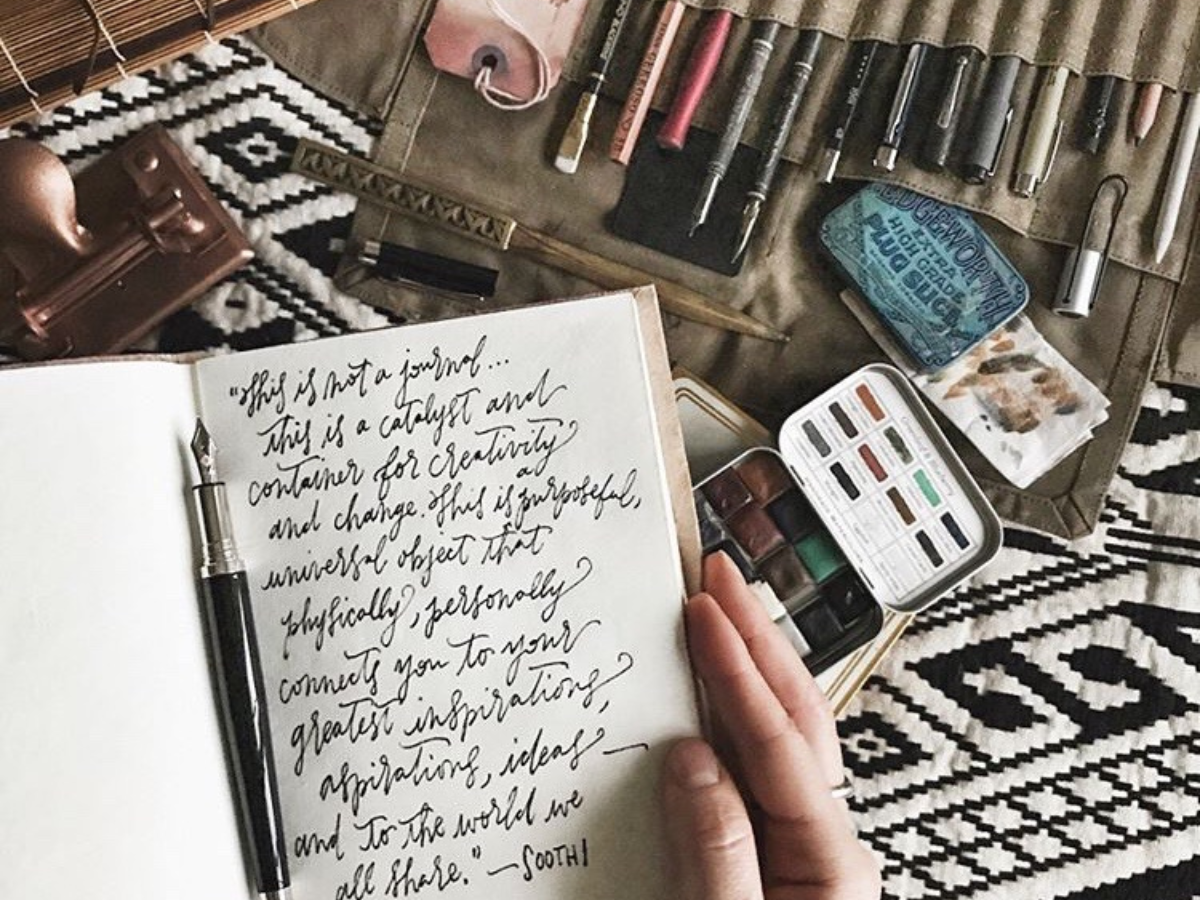 "This is not a journal...
this is a catalyst and
container for creativity
and change. This is a purposeful,
universal object that
physically, personally
connects you to your
greatest inspirations,
aspirations, ideas —
and to the world we
all share." — SOOTHI
EDGEWORTH
EXTRA
HIGH GRADE
PLUG SLICE